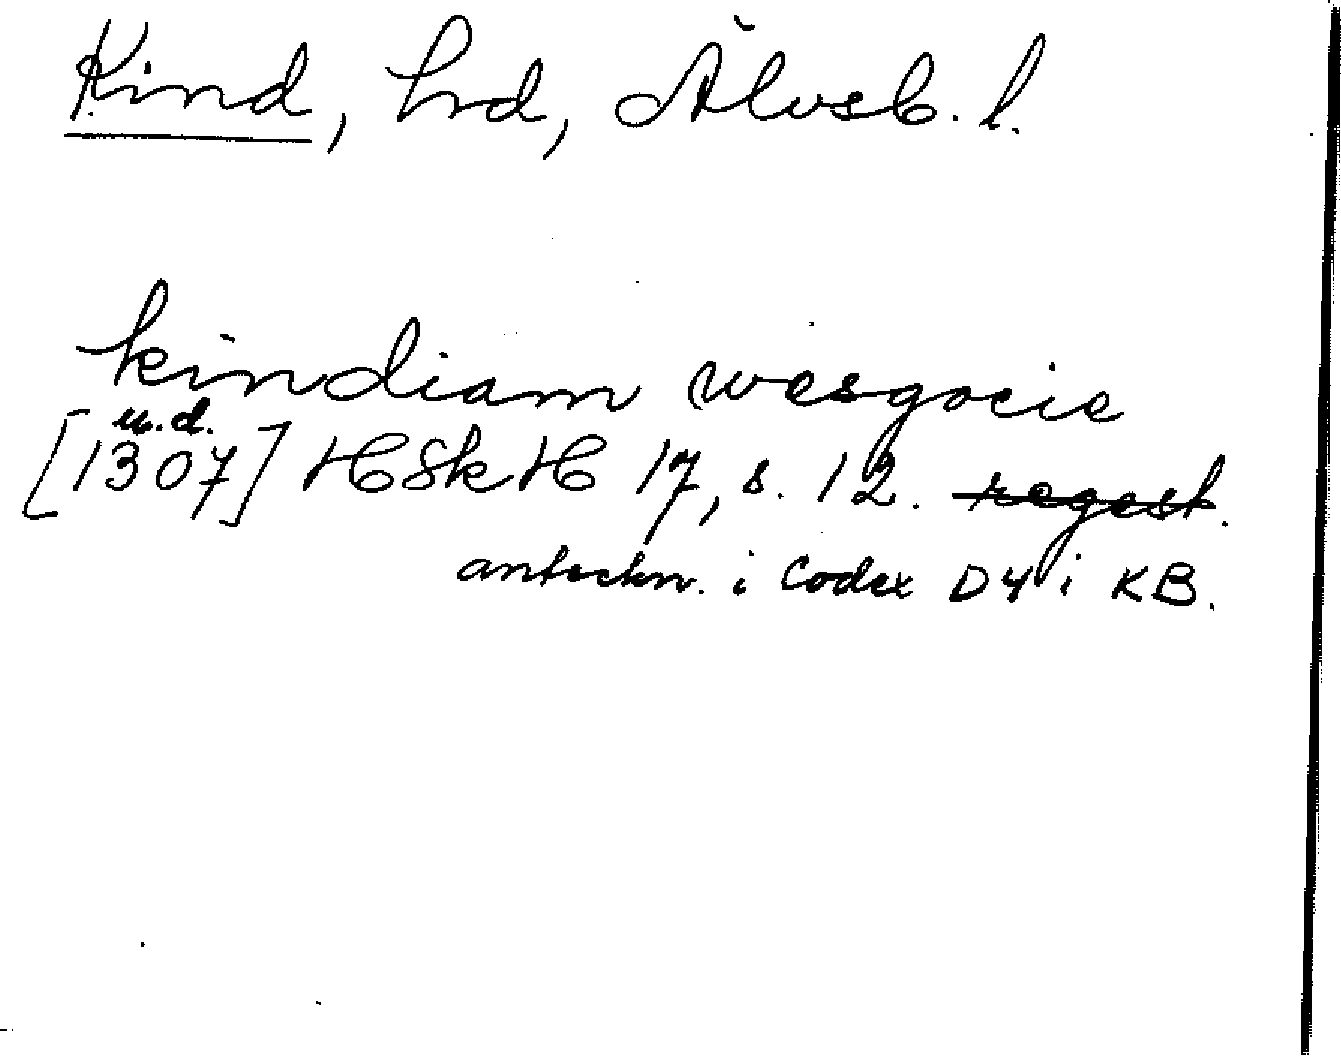 Kind, hd, Älvsb. l.
kindiam wesgocie
u.d.
[1307] HSkH 17, s. 12. regest.
anteckn. i Codex D4 i KB.